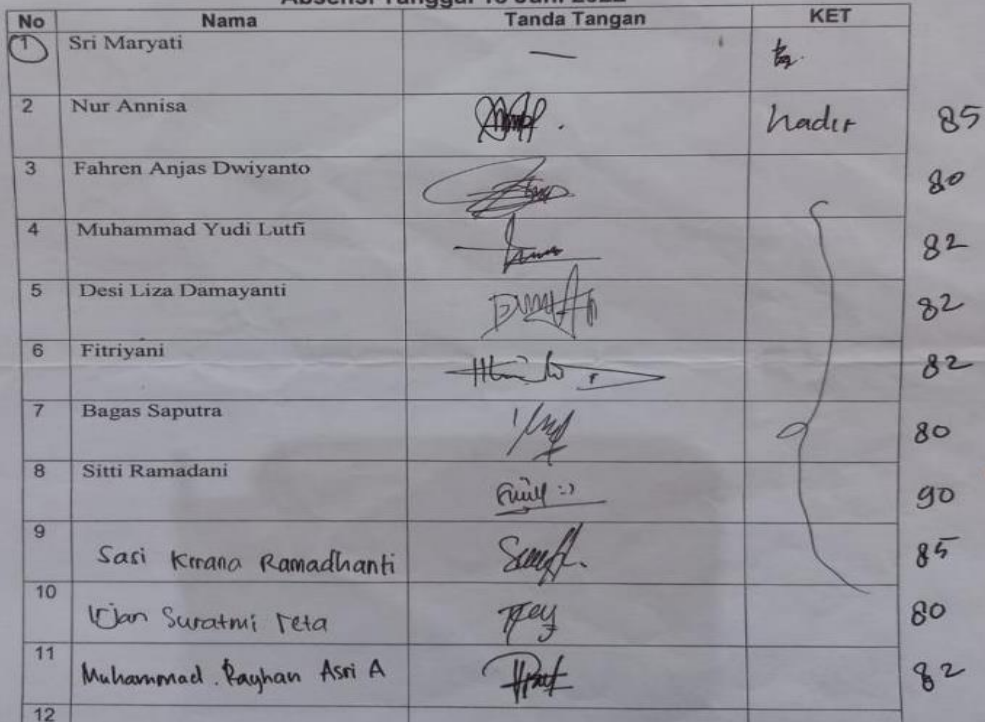 No Nama Tanda Tangan KET
1 Sri Maryati —
2 Nur Annisa hadir 85
3 Fahren Anjas Dwiyanto 80
4 Muhammad Yudi Lutfi 82
5 Desi Liza Damayanti 82
6 Fitriyani 82
7 Bagas Saputra 80
8 Sitti Ramadani 90
9 Sasi Kirana Ramadhanti 85
10 Suratmi 80
11 Muhammad. Rayhan Asri A 82
12